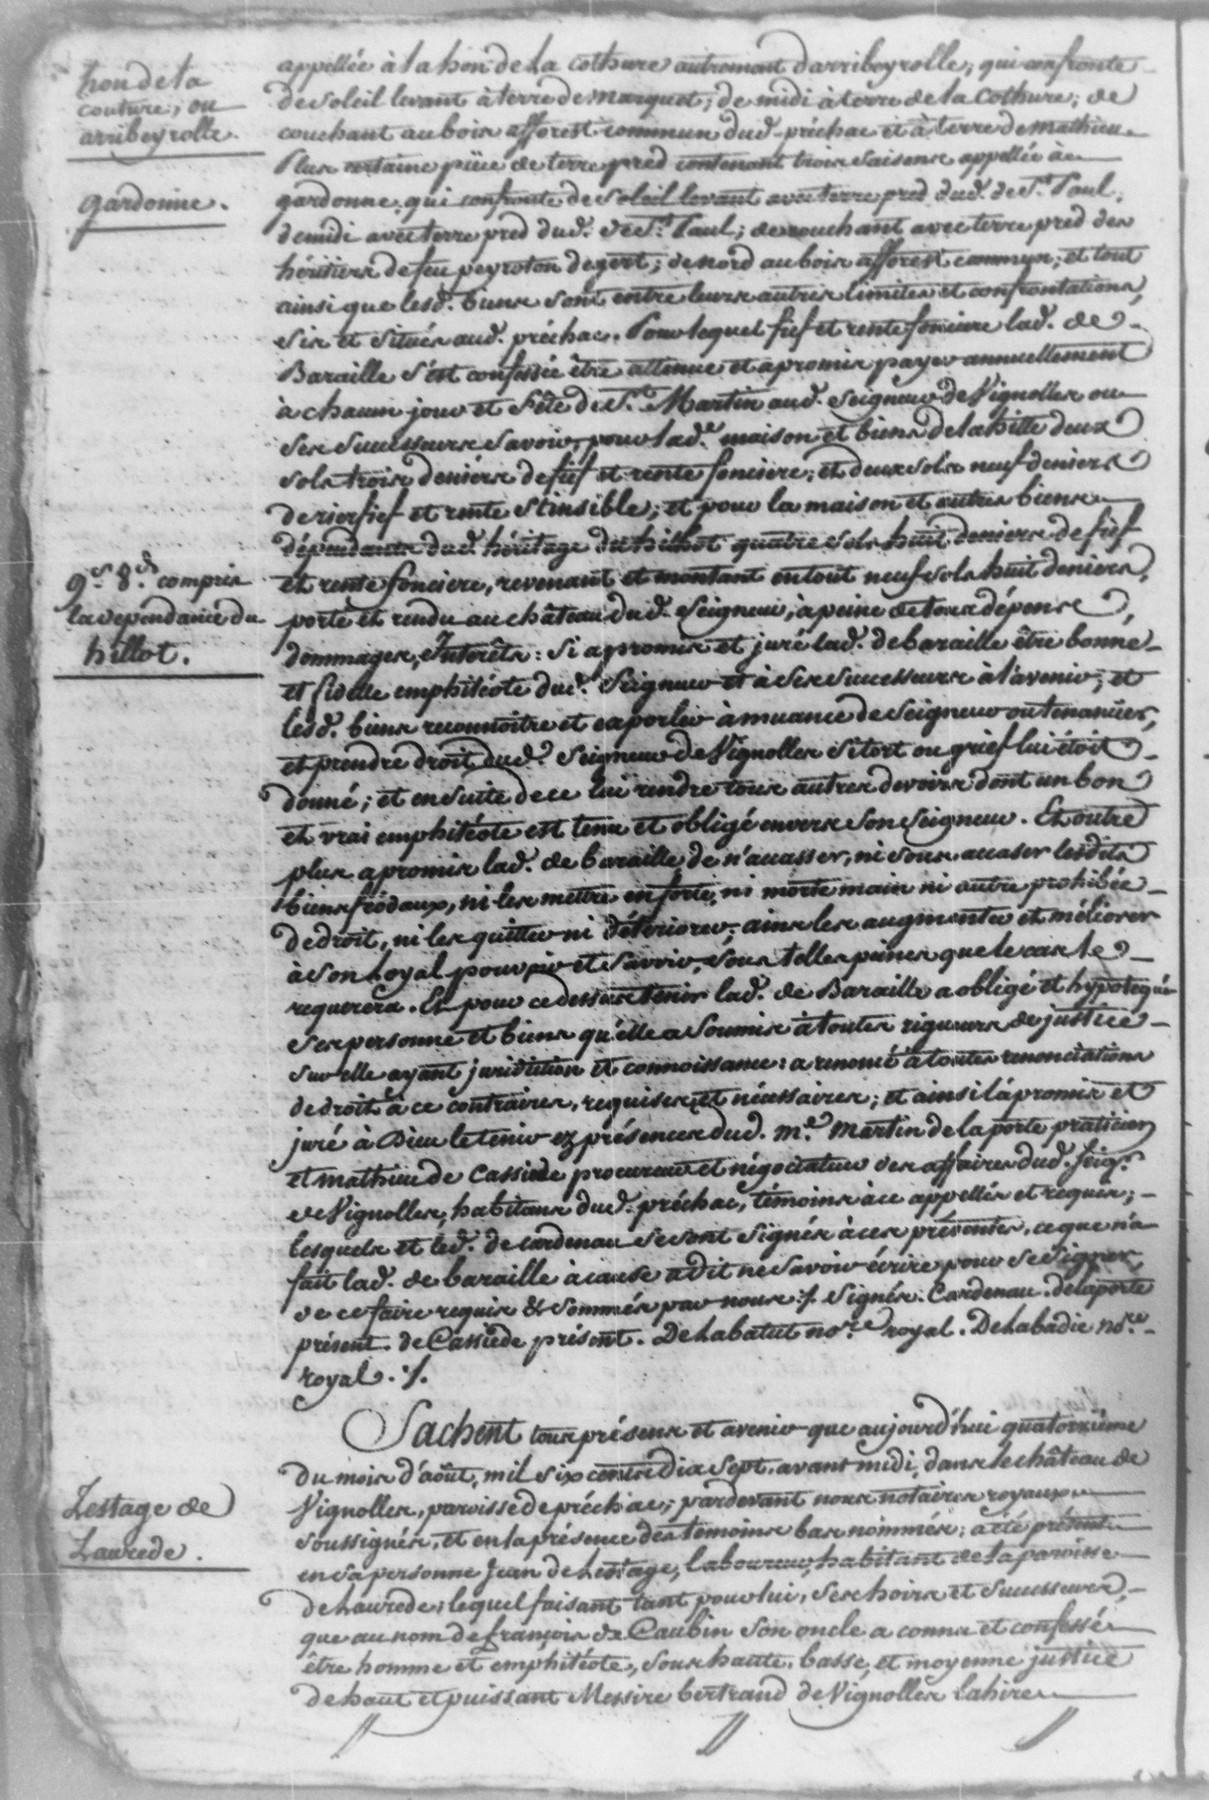 hon de la
couture, ou
arribeyrolle.
gardonne.
9.s 8.d compris
la dependance du
hillot.
Lestage de
Laurede.
appellée à la hon de la Cothure autrement d'arribeyrolle, qui confronte
de soleil levant à terre de marquet; de midi à terre de la Cothure; de
couchant au bois afforest commun dud. préchac et à terre de mathieu.
Plus certaine piéce de terre pred contenant trois saisons appellée à
gardonne, qui confronte de soleil levant avec terre pred dud. de St. Paul,
de midi avec terre pred dud. de St. Paul; de couchant avec terre pred des
héritiers de feu peyroton degert; de nord au bois afforest commun; et tout
ainsi que lesd. biens sont entre leurs autres limites et confrontations,
sis et situés aud. préchac. Pour lequel fief et rente fonciere lad. de
Baraille s'est confessée être attenue et a promis payer annuellement
à chacun jour et Fête de St. Martin aud. Seigneur de Vignolles ou
ses successeurs savoir, pour lad.e maison et biens de la hitte deux
sols trois deniérs de fief et rente fonciere; et deux sols neuf deniers
de rierfief et rente et insible; et pour la maison et autres biens
dépendants dud. héritage du hilhot quatre sols huit deniers de fief
et rente fonciere, revenant et montant en tout neuf sols huit deniers,
porté et rendu au château dud. Seigneur, à peine de tous dépens,
dommages, Interêts: Si a promis et juré lad. de baraille être bonne
et fidelle emphitéote dud. Seigneur et à ses successeurs à l'avenir; et
lesd. biens reconnoitre et exporler à muance de seigneur ou tenancier,
et prendre droit dud. Seigneur de Vignolles si tort ou grief lui étoit
donné; et ensuite de ce lui rendre tous autres devoirs dont un bon
et vrai emphitéote est tenu et obligé envers son Seigneur. Et outre
plus a promis lad. de baraille de n'acasser, ni sous acaser lesdits
biens féodaux, ni les mettre en forte, ni morte main ni autre prohibée
de droit, ni les quitter ni détériorer; ains les augmenter et méliorer
à son Loyal pouvoir et savoir, sous telles peines que le cas le
requerera. Et pour ce dessus tenir lad. de Baraille a obligé et hypotequé
ses personne et biens qu'elle a soumis à toutes rigueurs de justice
sur elle ayant juridition et connoissance: a renoncé à toutes renonciations
de droit à ce contraires, requises et nécessaires; et ainsi l'a promis et
juré à Dieu le tenir ez présences dud. m.e martin de laporte praticien
et mathieu de Cassiede procureur et négociateur des affaires dud. seig.r
de Vignolles, habitans dud. préchac, témoins à ce appellés et requis;
lesquels et led. de cardenau se sont signés à ces présentes, ce que n'a
fait lad. de baraille à cause a dit ne savoir écrire pour se signer,
de ce faire requis & sommés par nous ./. Signés. Cardenau. delaporte
présent. de Cassiede présent. De Labatut no.re royal. De Labadie no.re
royal ./.
Sachent tous présens et avenir que aujourd'hui quatorziéme
du mois d'août, mil six cents dix sept, avant midi, dans le château de
Vignolles, paroisse de préchac; pardevant nous notaires royaux
soussignés, et en la présence des temoins bas nommés; a été présent
en sa personne Jean de Lestage, laboureur, habitant de la paroisse
de Laurede; lequel faisant tant pour lui, ses hoirs et successeurs,
que au nom de françois de Caubin son oncle a connu et confessé
être homme et emphitéote, sous haute, basse, et moyenne justice
de haut et puissant Messire bertrand de Vignolles Lahire